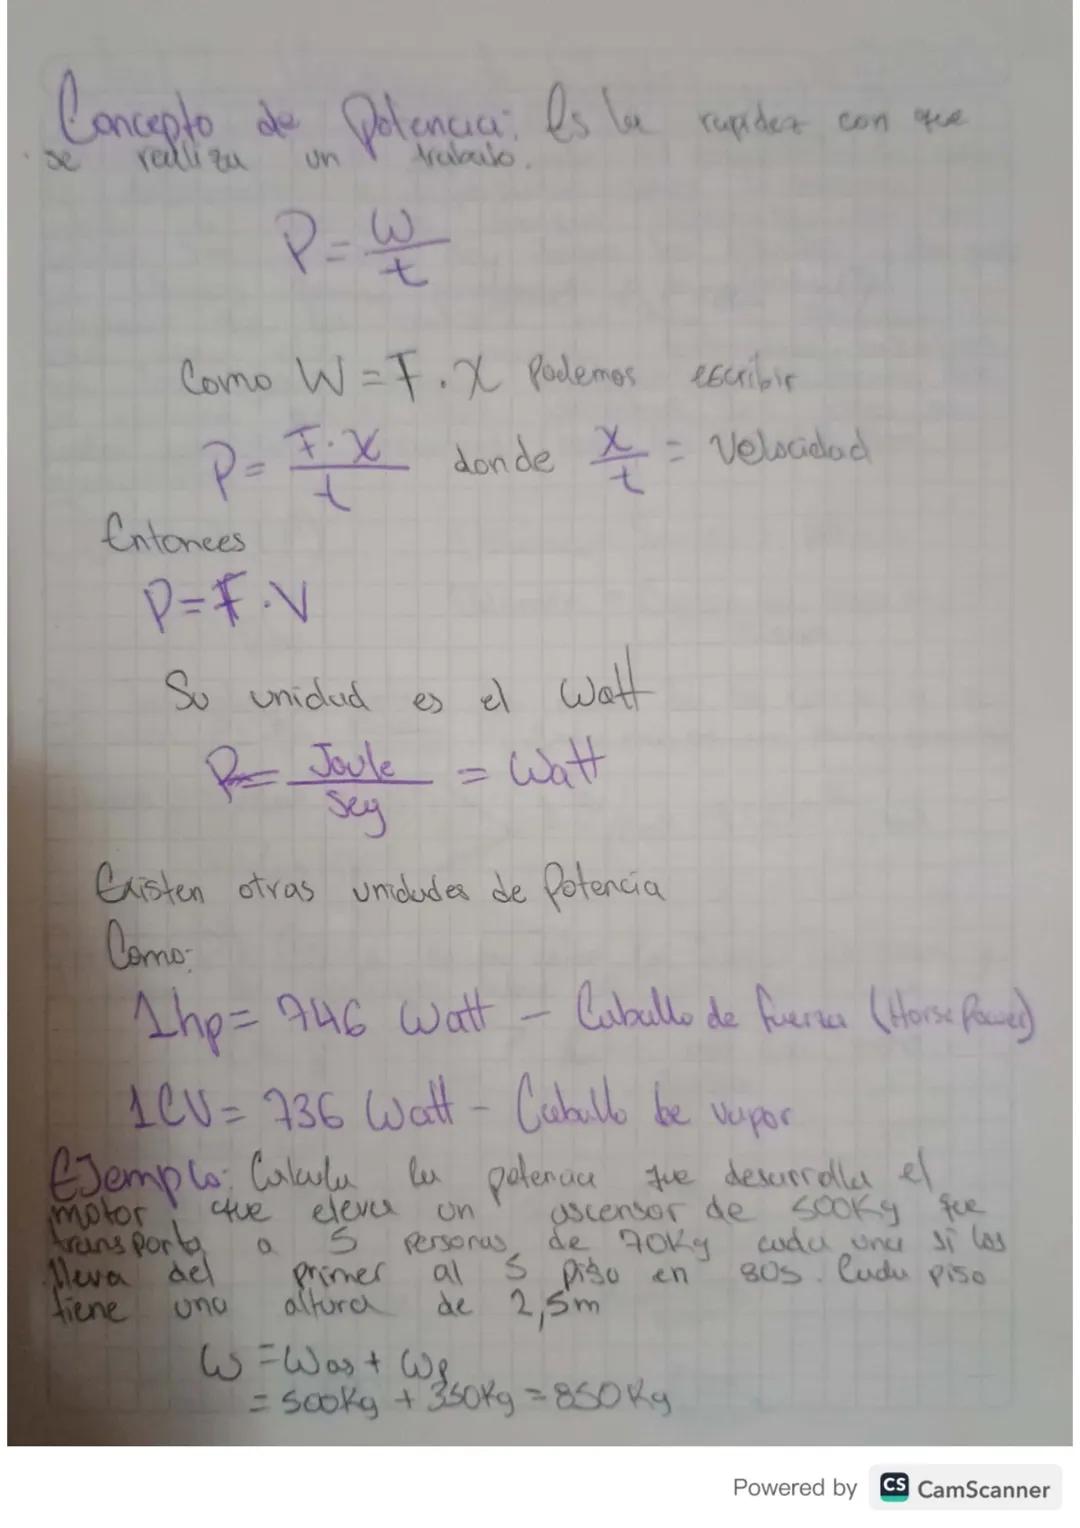 Concepto de Potencia: Es la rapidez con que
se realiza un trabajo.
P = W / t
Como W = F . X Podemos escribir
P = F . X / t donde X / t = Velocidad
Entonces
P = F . V
Su unidad es el Watt
P = Joule / Seg = Watt
Existen otras unidades de Potencia
Como:
1hp = 746 Watt - Caballo de fuerza (Horse Power)
1CV = 736 Watt - Caballo be vapor
EJemplo: Calcula la potencia que desarrolla el
motor que eleva un ascensor de 500Kg que
transporta a 5 personas, de 70Kg cada una si las
lleva del primer al 5 piso en 80s. Cada piso
tiene una altura de 2,5m
W = Was + Wp
= 500Kg + 350Kg = 850Kg
Powered by CS CamScanner